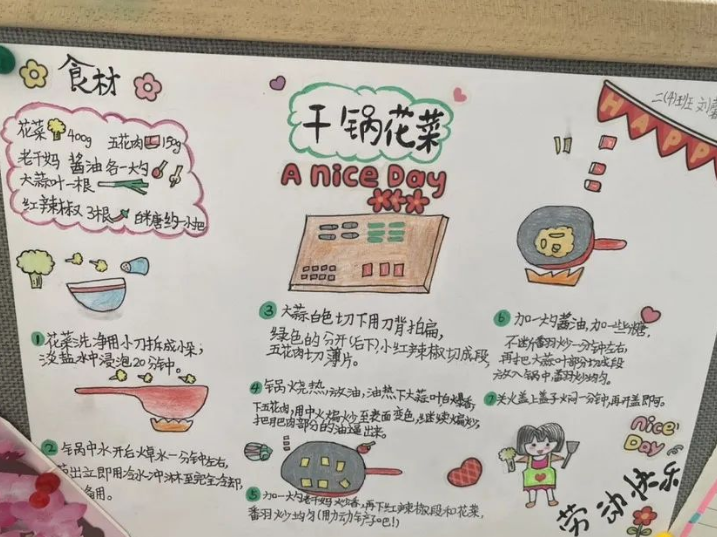 食材
花菜 400g 五花肉 150g
老干妈 酱油各一大勺
大蒜叶一根
红辣椒 3根 白米唐约一小把
干锅花菜
A nice Day
二(4)班 刘
HAPP
① 花菜洗净用小刀拆成小朵;
淡盐水中浸泡20分钟。
② 锅中水开后火草水一分钟左右,
出立即用冷水冲淋至完全冷却,
备用。
③ 大蒜白色切下用刀背拍扁,
绿色的分开(后下)小红辣椒切成段,
五花肉切薄片。
④ 锅烧热放油,油热下大蒜叶白爆香
下五花肉,用中火煸炒至表面变色,继续煸炒,
把月巴肉部分的油逼出来。
⑤ 加一大勺老干妈炒香,再下红辣椒段和花菜,
翻炒均匀(用力动铲子吧!)
⑥ 加一大勺酱油,加一些糖,
不断翻炒一分钟左右,
再把大蒜叶部分切成段
放入锅中翻炒均匀。
⑦ 关火盖上盖子火闷一分钟,再开盖即可。
nice
Day
劳动快乐